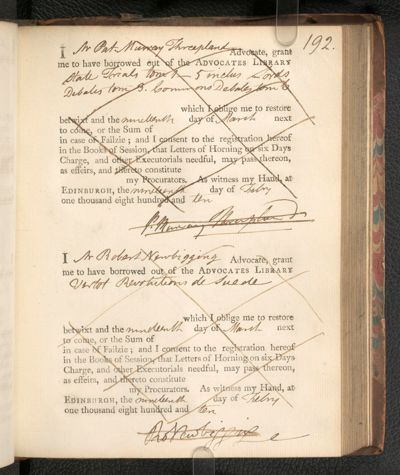 192.
I Mr Pat. Murray Threepland Advocate, grant
me to have borrowed out of the ADVOCATES LIBRARY
State Trials tom 1 – 5 inclus Lords
Debates tom 3. Commons Debates tom 6
which I oblige me to restore
betwixt and the nineteenth day of March next
to come, or the Sum of
in case of Failzie; and I consent to the registration hereof
in the Books of Session, that Letters of Horning on six Days
Charge, and other Executorials needful, may pass thereon,
as effeirs, and thereto constitute
my Procurators. As witness my Hand, at
EDINBURGH, the nineteenth day of Febry
one thousand eight hundred and ten
P. Murray Threipland
I Mr Robert Newbigging Advocate, grant
me to have borrowed out of the ADVOCATES LIBRARY
Vertot Revolutions de Suede
which I oblige me to restore
betwixt and the nineteenth day of March next
to come, or the Sum of
in case of Failzie; and I consent to the registration hereof
in the Books of Session, that Letters of Horning on six Days
Charge, and other Executorials needful, may pass thereon,
as effeirs, and thereto constitute
my Procurators. As witness my Hand, at
EDINBURGH, the nineteenth day of Febry
one thousand eight hundred and ten
Ro Newbigging